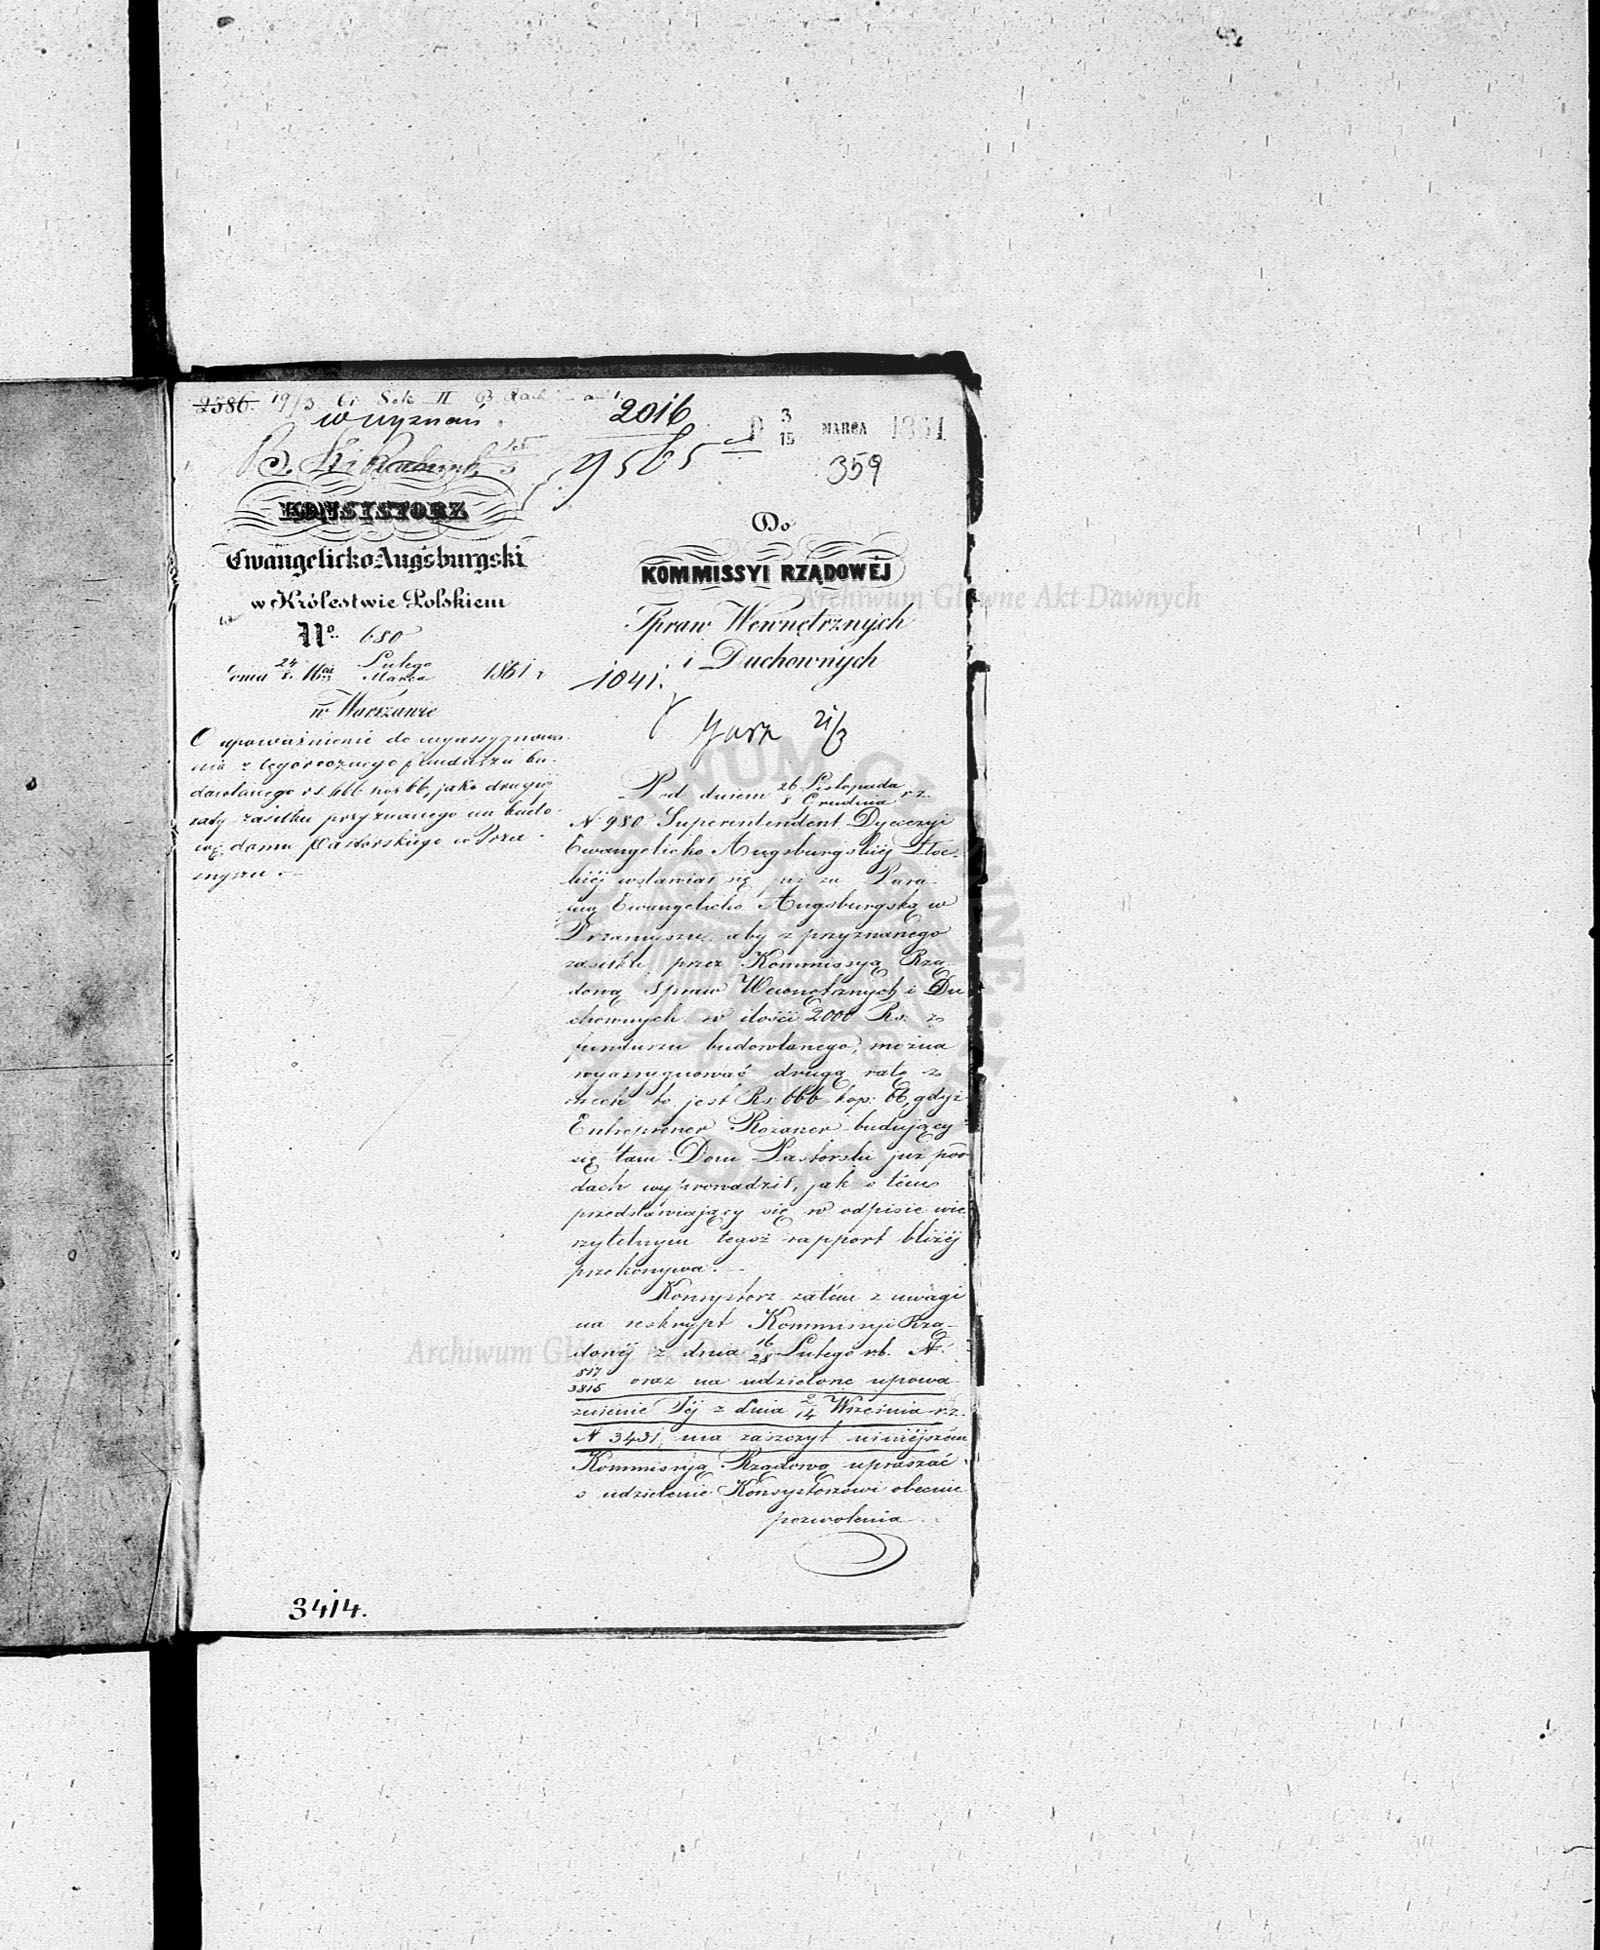 2586. 19/3
w wyznań
2016
9565
D 3/15 MARCA 1861
359
KONSYSTORZ
Ewangelicko-Augsburgski
w Królestwie Polskiem
No. 680
dnia 24/8 Lutego/Marca 1861 r
w Warszawie
O upoważnienie do wyassygnowa-
nia z tegorocznego funduszu bu-
dowlanego rs. 666 kop 66, jako drugiéj
raty zasiłku przyznanego na budo-
wę domu Pastorskiego w Prza-
snyszu.
3414.
Do
KOMMISSYI RZĄDOWÉJ
Spraw Wewnętrznych
i Duchownych
1041.
21/3
Pod dniem 26 Listopada/8 Grudnia r.z.
N. 980 Superintendent Dyecezyi
Ewangelicko Augsburgskiéj Płoc-
kiéj wstawiał się już za Para-
fią Ewangelicko Augsburgską w
Przasnyszu, aby z przyznanego
zasiłku przez Kommissyą Rzą-
dową Spraw Wewnętrznych i Du-
chownych w ilości 2000 Rs. z
funduszu budowlanego, można
wyassygnować drugą ratę z
niech to jest Rs. 666 kop. 66, gdyż
Entreprener Rożaner budujący
się tam Dom Pastorski już pod
dach wyprowadził, jak o tém
przedstawiający się w odpisie wie-
rzytelnym tegoż rapport bliżéj
przekonywa.
Konsystorz zatém z uwagi
na reskrypt Kommissyi Rzą-
dowéj z dnia 16/28 Lutego r.b. N.
517/3815 oraz na udzielone upowa-
żnienie Jéj z dnia 2/14 Września r.z.
N 3431, ma zaszczyt niniéjszém
Kommissyą Rządową upraszać
o udzielenie Konsystorzowi obecnie
pozwolenia
Archiwum Główne Akt Dawnych
Archiwum Główne Akt Dawnych